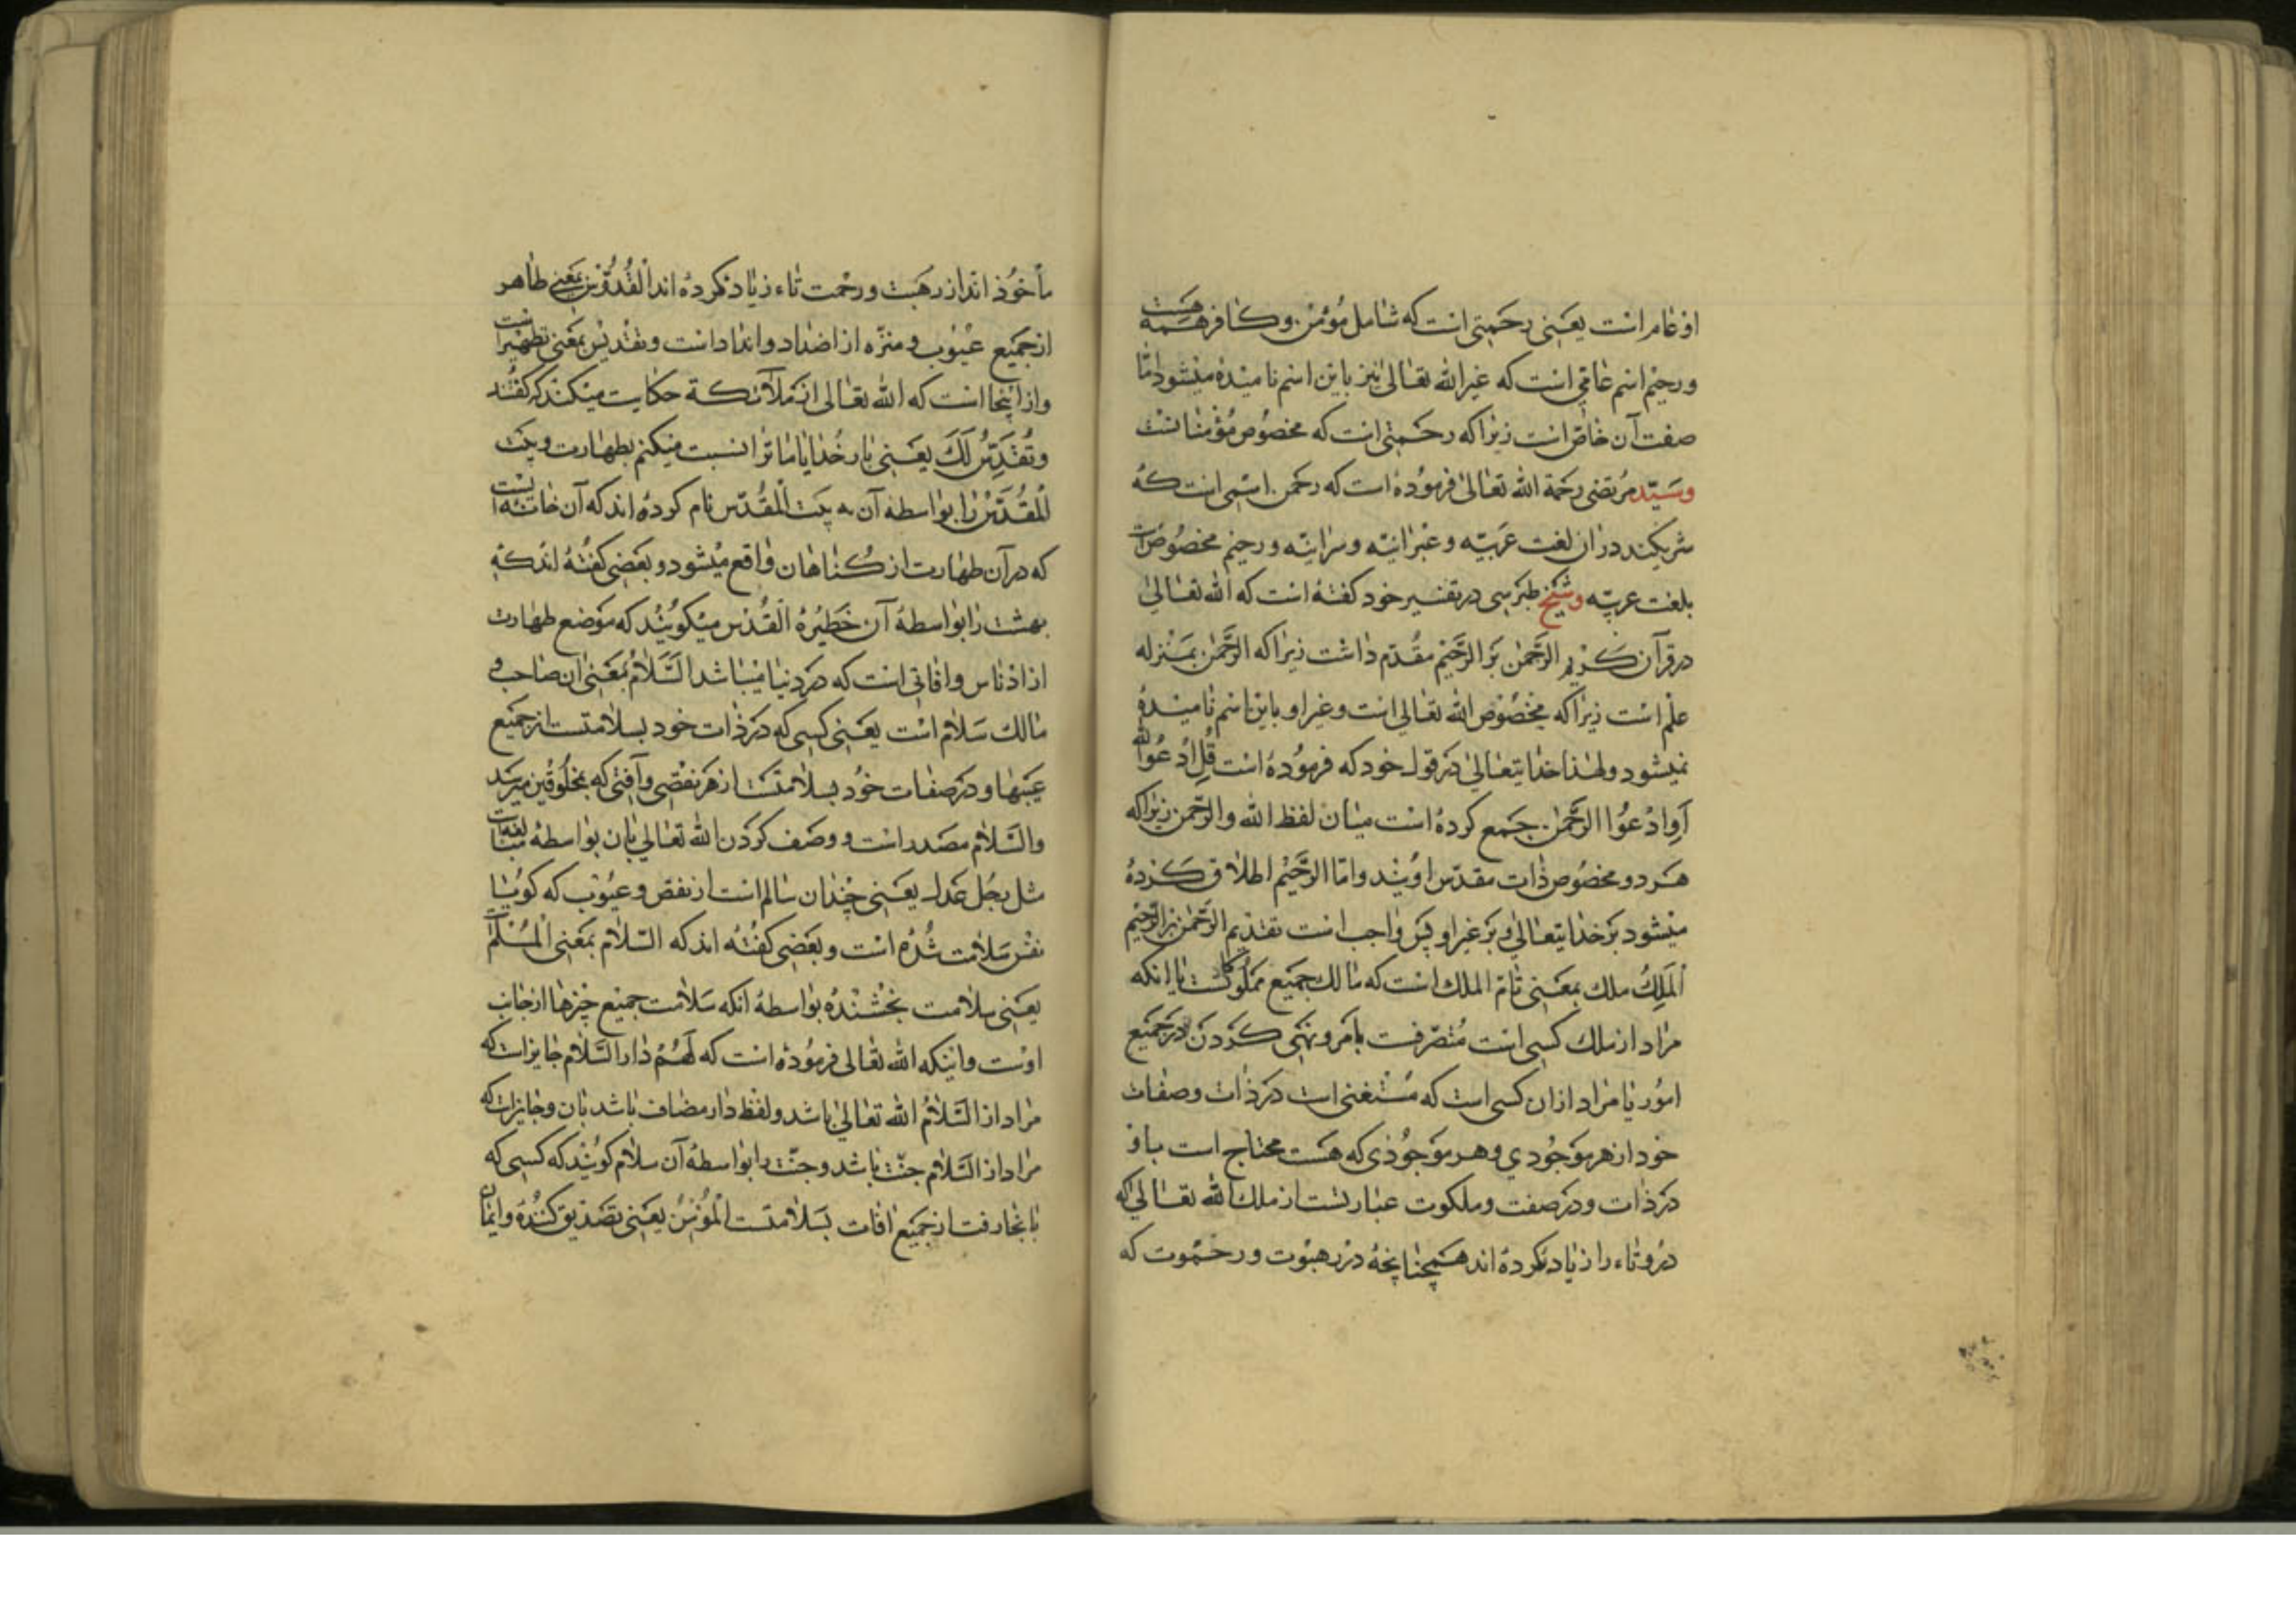 او عام است یعنی رحمتی است که شامل مؤمن و کافر همه هست
و رحیم اسم عامی است که غیر الله تعالی نیز باین اسم نامیده میشود امّا
صفت آن خاصّ است زیرا که رحمتی است که مخصوص مؤمنانست
و سیّد مرتضی رحمة الله تعالی فرموده است که رحمن اسمی است که
شریکند در ان لغت عربیّه و عبرانیّه و سرانیّه و رحیم مخصوصست
بلغت عربیّه و شیخ طبرسی در تفسیر خود گفته است که الله تعالی
در قرآن کریم الرّحمن بر الرّحیم مقدّم داشت زیرا که الرّحمن بمنزله
علم است زیرا که مخصوص الله تعالی است و غیر او باین اسم نامیده
نمیشود و لهذا خدایتعالی در قول خود که فرموده است قُلِ ادْعُوا الله
اَوِ ادْعُوا الرَّحْمٰن جمع کرده است میان لفظ الله و الرّحمن زیرا که
هر دو مخصوص ذات مقدّس اویند و امّا الرّحیم اطلاق کرده
میشود بر خدایتعالی و بر غیر او پس واجب است تقدیم الرّحمن بر الرّحیم
اَلْمَلِکُ ملک بمعنی تامّ الملک است که مالک جمیع مملوکست یا انکه
مراد از ملک کسی است متصرّفست بامر و نهی کردن در جمیع
امور یا مراد از ان کسی است که مستغنی است در ذات و صفات
خود از هر موجودی و هر موجودی که هست محتاج است باو
در ذات و در صفت و ملکوت عبارتست از ملک الله تعالی که
در و تاء را زیاد کرده اند همچنانچه در رهبوت و رحموت که
مأخوذ اند از رهبت و رحمت تاء زیاد کرده اند الْقُدُّوْس بمعنی طاهر
از جمیع عیوب و منزّه از اضداد و انداد است و تقدیس بمعنی تطهیر است
و از اینجا است که الله تعالی از ملآئکة حکایت میکند که گفتند
وَنُقَدِّسُ لَکَ یعنی بار خدایا ما ترا نسبت میکنیم بطهارت و بیت
الْمقدّس را بواسطه آن به بیت الْمقدّس نام کرده اند که آن خانه ایست
که در آن طهارت از گناهان واقع میشود و بعضی گفته اند که
بهشت را بواسطهٔ آن خطیرة القدس میگویند که موضع طهارت
از ادناس و افاتی است که در دنیا میباشد السَّلامُ بمعنی ان صاحب و
مالک سلام است یعنی کسی که در ذات خود بسلامتست از جمیع
عیبها و در صفات خود بسلامتست از هر نقصی و آفتی که بمخلوقین میرسد
و السّلام مصدر است و وصف کردن الله تعالی بان بواسطهٔ مبالغه است
مثل رجُل عدل یعنی چندان سالم است از نقص و عیوب که گوییا
نفس سلامت شده است و بعضی گفته اند که السّلام بمعنی الْمُسْلّم
یعنی سلامت بخشنده بواسطهٔ انکه سلامت جمیع چیزها از جانب
اوست و اینکه الله تعالی فرموده است که لَهُمْ دار السَّلام جایز است که
مراد از السّلامُ الله تعالی باشد و لفظ دار مضاف باشد بان و جایز است که
مراد از السّلام جنّت باشد و جنّت را بواسطهٔ آن سلام گویند که کسی که
بانجا رفت از جمیع افات بسلامتست الْمُؤْمِنُ یعنی تصدیق کننده و ایمان